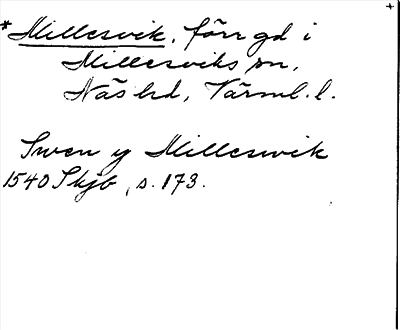 *Millesvik, förr gd i
Millesviks sn,
Näs hd, Värml. l.
Swen y Milleswik
1540 Skjb, s. 173.